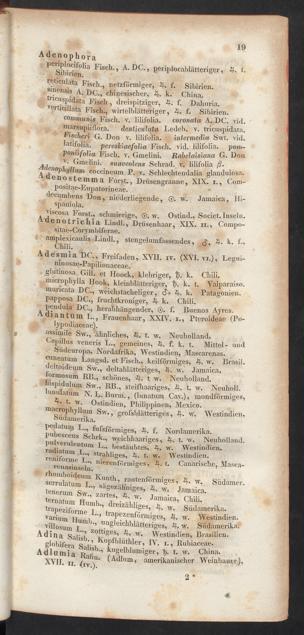 19
Adenophora
periplocifolia Fisch., A. DC., periplocablätteriger, ♃. f.
Sibirien.
reticulata Fisch., netzförmiger, ♃. f. Sibirien.
sinensis A. DC., chinesischer, ♃. k. China.
tricuspidata Fisch., dreispitziger, ♃. f. Dahuria.
verticillata Fisch., wirtelblätteriger, ♃. f. Sibirien.
communis Fisch. v. lilifolia. coronata A. DC. vid.
marsupiiflora. denticulata Ledeb. v. tricuspidata.
Fischeri G. Don v. lilifolia. intermedia Swt. vid.
latifolia. pereskiaefolia Fisch. vid. pereskiifolia. pom-
poniifolia Fisch. v. Gmelini. Rabelaisiana G. Don
v. Gmelini. suaveolens Schrad. v. lilifolia β.
Adenophyllum coccineum P. v. Schlechtendalia glandulosa.
Adenostemma Forst., Drüsengranne, XIX. I., Com-
positae-Eupatorineae.
decumbens Don, niederliegende, ☉. w. Jamaica, Hi-
spaniola.
viscosa Forst., schmierige, ☉. w. Ostind., Societ. Inseln.
Adenotrichia Lindl., Drüsenhaar, XIX. II., Compo-
sitae-Corymbiferae.
amplexicaulis Lindl., stengelumfassendes, ♂, ♃. k. f.,
Chili.
Adesmia DC., Freifaden, XVII. IV. (XVI. VI.), Legu-
minosae-Papilionaceae.
glutinosa Gill. et Hoock, klebriger, ♄. k. Chili.
microphylla Hook, kleinblätteriger, ♄. k. t. Valparaiso.
muricata DC., weichstacheliger, ♂. ♃. k. Patagonien.
papposa DC., fruchtkroniger, ♃. k. Chili.
pendula DC., herabhängender, ☉. f. Buenos Ayres.
Adiantum L., Frauenhaar, XXIV. I., Pteroideae (Po-
lypodiaceae).
assimile Sw., ähnliches, ♃. t. w. Neuholland.
Capillus veneris L., gemeines, ♃. f. k. t. Mittel- und
Südeuropa. Nordafrika, Westindien, Mascarenas.
cuneatum Langsd. et Fisch., keilförmiges, ♃. w. Brasil.
deltoideum Sw., deltablätteriges, ♃. w. Jamaica.
formosum RBr., schönes, ♃. t. w. Neuholland.
hispidulum Sw., RBr., steifhaariges, ♃. t. w. Neuholl.
lunulatum N. L. Burm., (lunatum Cav.), mondförmiges,
♃. t. w. Ostindien, Philippinen, Mexico.
macrophyllum Sw., großblätteriges, ♃. w. Westindien,
Südamerika.
pedatum L., fußförmiges, ♃. f. Nordamerika.
pubescens Schrk., weichhaariges, ♃. t. w. Neuholland.
pulverulentum L., bestäubtes, ♃. w. Westindien.
radiatum L., strahliges, ♃. t. w. Westindien.
reniforme L., nierenförmiges, ♃. t. Canarische, Masca-
reneninseln.
rhomboideum Kunth, rautenförmiges, ♃. w. Südamer.
serrulatum L., sägezähniges, ♃. w. Jamaica.
tenerum Sw., zartes, ♃. w. Jamaica, Chili.
ternatum Humb., dreizähliges, ♃. w. Südamerika.
trapeziforme L., trapezenförmiges, ♃. w. Westindien.
varium Humb., ungleichblätteriges, ♃. w. Südamerika.
villosum L., zottiges, ♃. w. Westindien, Brasilien.
Adina Salisb., Kopfblüthler, IV. I., Rubiaceae.
globifera Salisb., kugelblumiger, ♄. t. w. China.
Adlumia Rafin. (Adlum, amerikanischer Weinbauer),
XVII. II. (IV.).
2 *